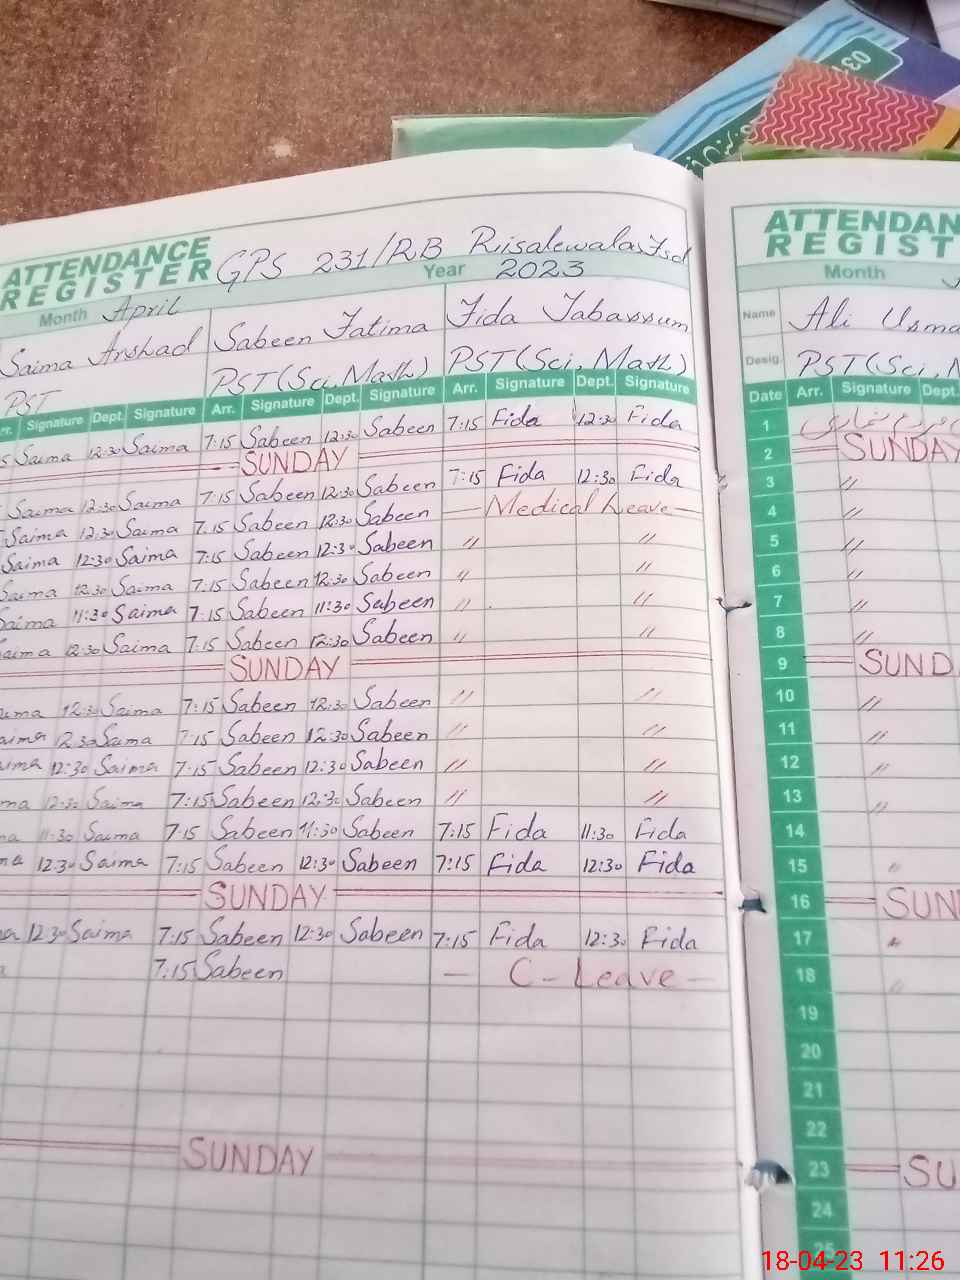 ATTENDANCE
REGISTER
GPS 231/RB Risalewala Fsd
Month April Year 2023
Saima Arshad Sabeen Fatima Fida Tabassum
PST PST (Sci, Math) PST (Sci, Math)
Signature Dept. Signature Arr. Signature Dept. Signature Arr. Signature Dept. Signature
Saima 12:30 Saima 7:15 Sabeen 12:30 Sabeen 7:15 Fida 12:30 Fida
SUNDAY
Saima 12:30 Saima 7:15 Sabeen 12:30 Sabeen 7:15 Fida 12:30 Fida
Saima 12:30 Saima 7:15 Sabeen 12:30 Sabeen — Medical Leave —
Saima 12:30 Saima 7:15 Sabeen 12:30 Sabeen " "
Saima 12:30 Saima 7:15 Sabeen 12:30 Sabeen " "
Saima 11:30 Saima 7:15 Sabeen 11:30 Sabeen " "
aima 12:30 Saima 7:15 Sabeen 12:30 Sabeen " "
SUNDAY
ima 12:30 Saima 7:15 Sabeen 12:30 Sabeen " "
aima 12:30 Saima 7:15 Sabeen 12:30 Sabeen " "
ima 12:30 Saima 7:15 Sabeen 12:30 Sabeen " "
ma 12:30 Saima 7:15 Sabeen 12:30 Sabeen " "
na 11:30 Saima 7:15 Sabeen 11:30 Sabeen 7:15 Fida 11:30 Fida
na 12:30 Saima 7:15 Sabeen 12:30 Sabeen 7:15 Fida 12:30 Fida
SUNDAY
a 12:30 Saima 7:15 Sabeen 12:30 Sabeen 7:15 Fida 12:30 Fida
7:15 Sabeen — C-Leave —
SUNDAY
ATTENDAN
REGIST
Month
Name Ali Usma
Desig. PST (Sci, M
Date Arr. Signature Dept.
1
2 SUNDAY
3 "
4 "
5 "
6 "
7 "
8 "
9 SUND
10 "
11 "
12 "
13 "
14
15 "
16 SUN
17 "
18 "
19
20
21
22
23 SU
24
25
18-04-23 11:26